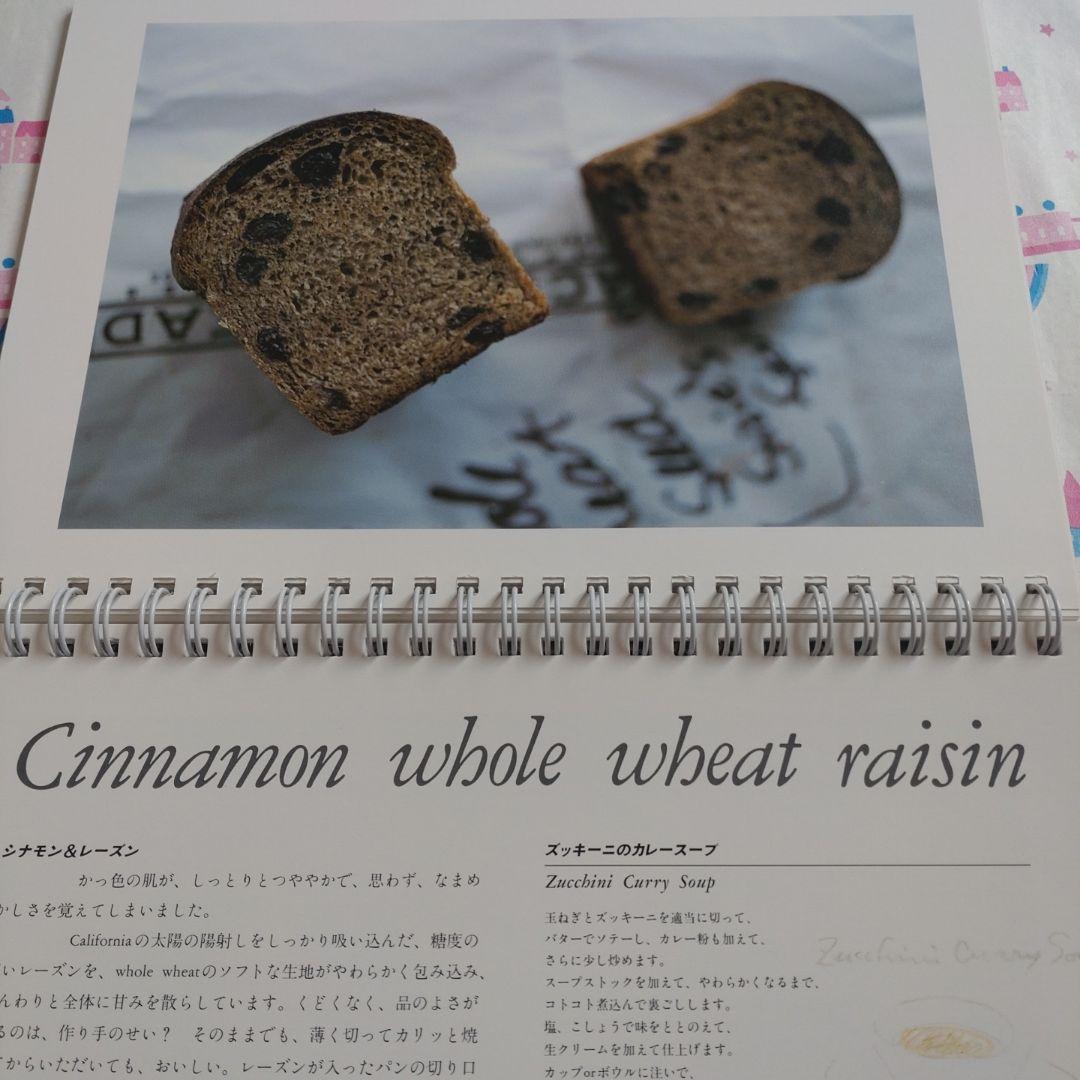 AD
Cinnamon whole wheat raisin
シナモン&レーズン
かっ色の肌が、しっとりとつややかで、思わず、なまめ
かしさを覚えてしまいました。
Californiaの太陽の陽射しをしっかり吸い込んだ、糖度の
いレーズンを、whole wheatのソフトな生地がやわらかく包み込み、
んわりと全体に甘みを散らしています。くどくなく、品のよさが
るのは、作り手のせい? そのままでも、薄く切ってカリッと焼
てからいただいても、おいしい。レーズンが入ったパンの切り口
ズッキーニのカレースープ
Zucchini Curry Soup
玉ねぎとズッキーニを適当に切って、
バターでソテーし、カレー粉も加えて、
さらに少し炒めます。
スープストックを加えて、やわらかくなるまで、
コトコト煮込んで裏ごしします。
塩、こしょうで味をととのえて、
生クリームを加えて仕上げます。
カップorボウルに注いで、
Zucchini Curry So